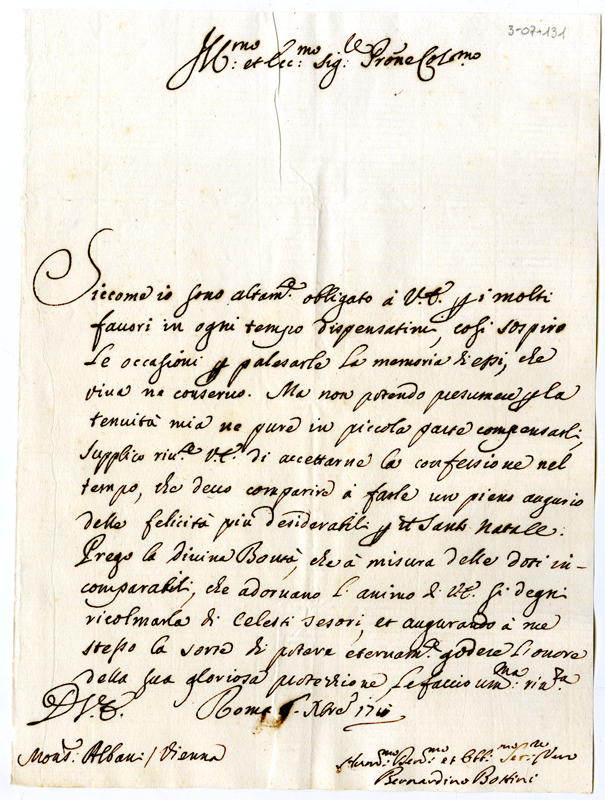 3-07-131
Ill.mo et Ecc.mo Sig.re Prone Colmo
Siccome io sono altam.te obligato à V.E. p i molti
favori in ogni tempo dispensatimi, così sospiro
le occasioni p palesarle la memoria di essi, che
viva ne conservo. Ma non potendo presumere p la
tenuità mia ne pure in piccola parte compensarli,
supplico riv.te V.E. di accettarne la confessione nel
tempo, che devo comparire à farle un pieno augurio
delle felicità più desiderabili p il Santo Natale.
Prego la Divina Bontà, che à misura delle doti in-
comparabili, che adornano l'animo di V.E. si degni
ricolmarla di Celesti Tesori, et augurando à me
stesso la sorte di potere eternam.te godere l'onore
della sua gloriosa protezzione, le faccio um.ma riv.za
D V.E. Roma Xbre
Mons.r Albani / Vienna
Hum.mo Dev.mo et Obl.mo Ser.re Vero
Bernardino Bottini